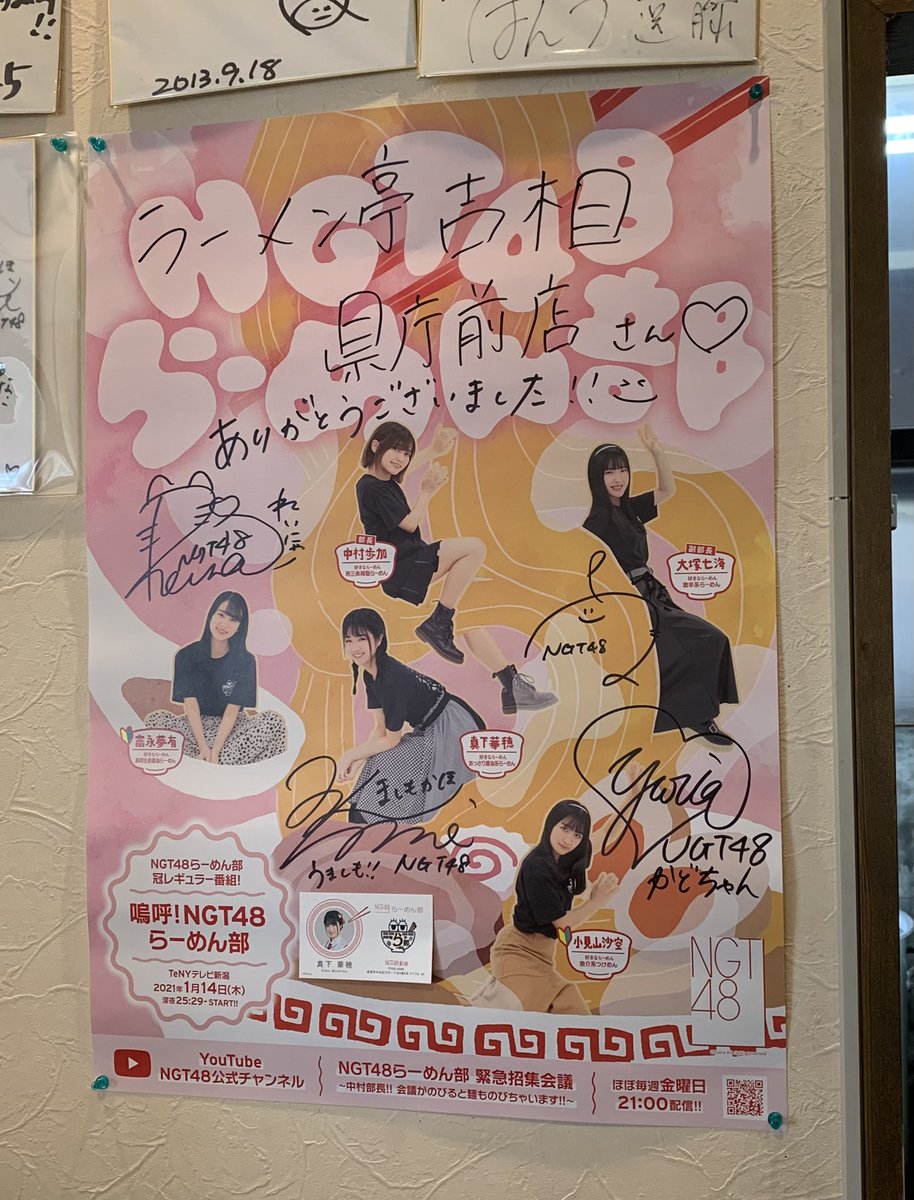 2013.9.18
はんつ遠藤
NGT48
らーめん部
ラーメン亭 吉相
県庁前店 さん♡
ありがとうございました!!
れいな
NGT48
部長
中村歩加
好きならーめん
燕三条背脂らーめん
副部長
大塚七海
好きならーめん
激辛系らーめん
NGT48
富永夢有
好きならーめん
長岡生姜醤油らーめん
真下華穂
好きならーめん
あっさり醤油系らーめん
ましもかほ
うましも!! NGT48
NGT48
かどちゃん
小見山沙空
好きならーめん
魚介系つけめん
NGT48らーめん部
冠レギュラー番組!
嗚呼!NGT48
らーめん部
TeNYテレビ新潟
2021年1月14日(木)
深夜25:29-START!!
NGT48 らーめん部
真下 華穂
NGT48劇場
NGT
48
YouTube
NGT48公式チャンネル
NGT48らーめん部 緊急招集会議
~中村部長!! 会議がのびると麺ものびちゃいます!!~
ほぼ毎週金曜日
21:00配信!!